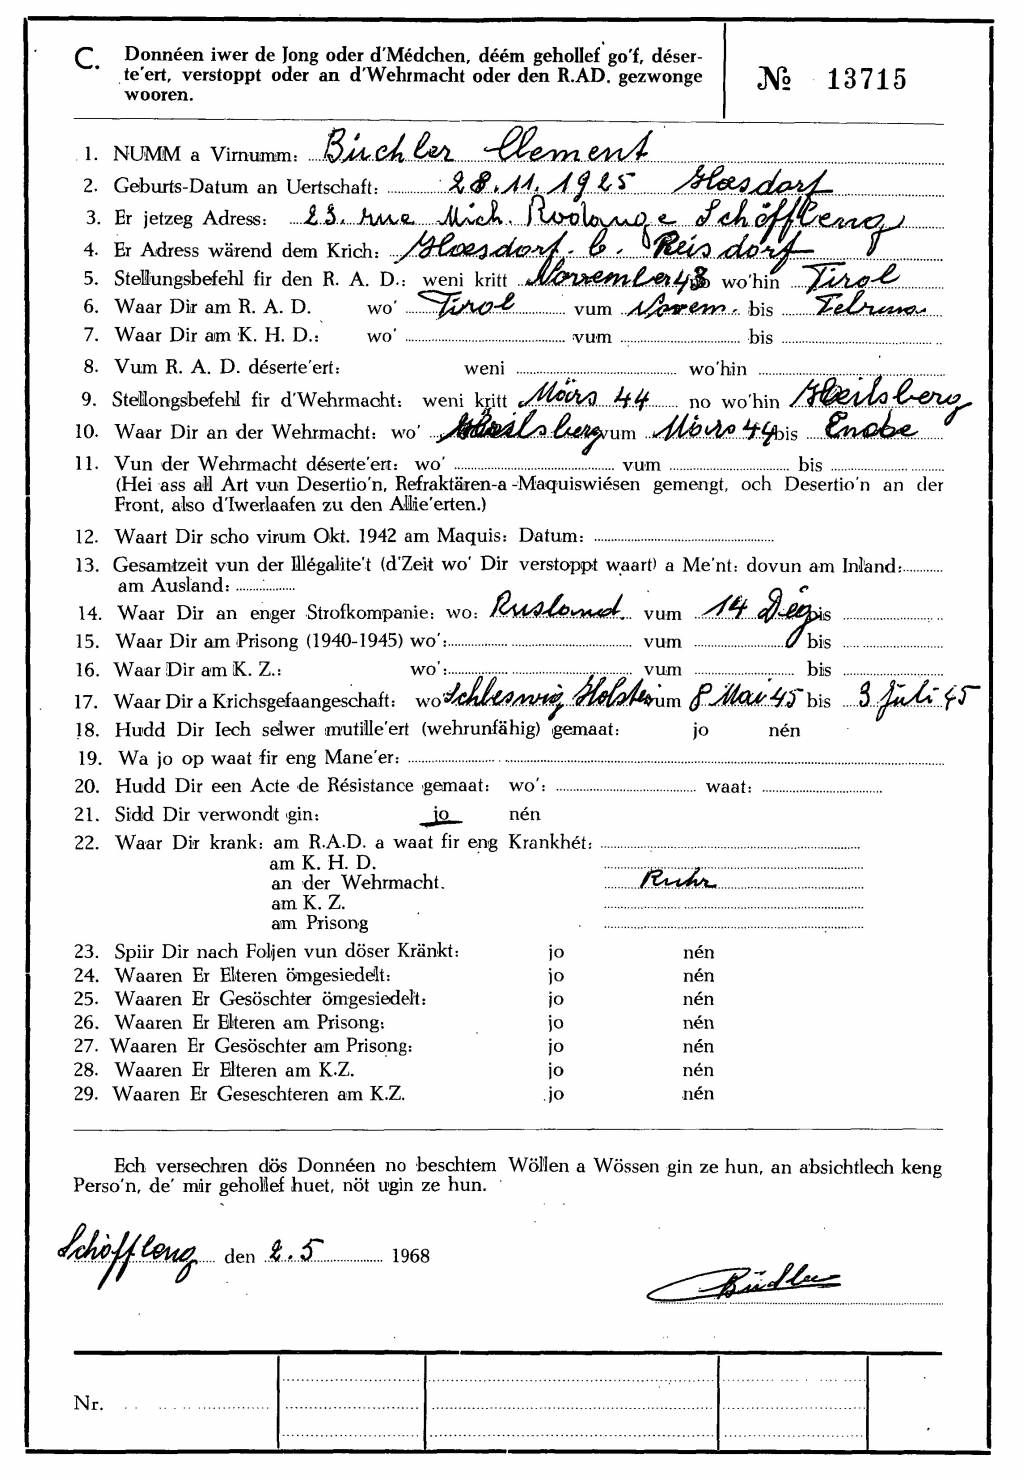 C. Donnéen iwer de Jong oder d'Médchen, déém gehollef go'f, déser-
te'ert, verstoppt oder an d'Wehrmacht oder den R.AD. gezwonge
wooren.
№ 13715
1. NUMM a Virnumm: Büchler Clement
2. Geburts-Datum an Uertschaft: 28.11.1925 Hoesdorf
3. Er jetzeg Adress: 23. rue Mich. Rodange Schöffleng
4. Er Adress wärend dem Krich: Hoesdorf b. Reisdorf
5. Stellungsbefehl fir den R. A. D.: weni kritt November 43 wo'hin Tirol
6. Waar Dir am R. A. D. wo' Tirol vum Novem. bis Februar
7. Waar Dir am K. H. D.: wo' vum bis
8. Vum R. A. D. déserte'ert: weni wo'hin
9. Stellongsbefehl fir d'Wehrmacht: weni kritt März 44 no wo'hin Heilsberg
10. Waar Dir an der Wehrmacht: wo' Heilsberg vum März 44 bis Ende
11. Vun der Wehrmacht déserte'ert: wo' vum bis
(Hei ass all Art vun Desertio'n, Refraktären-a -Maquiswiésen gemengt, och Desertio'n an der
Front, also d'Iwerlaafen zu den Allie'erten.)
12. Waart Dir scho virum Okt. 1942 am Maquis: Datum:
13. Gesamtzeit vun der Illégalite't (d'Zeit wo' Dir verstoppt waart) a Me'nt: dovun am Inland:
am Ausland:
14. Waar Dir an enger Strofkompanie: wo: Rusland vum 14 Dez bis
15. Waar Dir am Prisong (1940-1945) wo': vum bis
16. Waar Dir am K. Z.: wo': vum bis
17. Waar Dir a Krichsgefaangeschaft: wo Schleswig Holstein vum 8 Mai 45 bis 3 Juli 45
18. Hudd Dir Iech selwer mutille'ert (wehrunfähig) gemaat: jo nén
19. Wa jo op waat fir eng Mane'er:
20. Hudd Dir een Acte de Résistance gemaat: wo': waat:
21. Sidd Dir verwondt gin: jo nén
22. Waar Dir krank: am R.A.D. a waat fir eng Krankhét:
am K. H. D.
an der Wehrmacht. Ruhr
am K. Z.
am Prisong
23. Spiir Dir nach Foljen vun döser Kränkt: jo nén
24. Waaren Er Elteren ömgesiedelt: jo nén
25. Waaren Er Gesöschter ömgesiedelt: jo nén
26. Waaren Er Elteren am Prisong: jo nén
27. Waaren Er Gesöschter am Prisong: jo nén
28. Waaren Er Elteren am K.Z. jo nén
29. Waaren Er Geseschteren am K.Z. jo nén
Ech versechren dös Donnéen no beschtem Wöllen a Wössen gin ze hun, an absichtlech keng
Perso'n, de' mir gehollef huet, nöt ugin ze hun.
Schöffleng den 2.5 1968
Büchler
Nr.